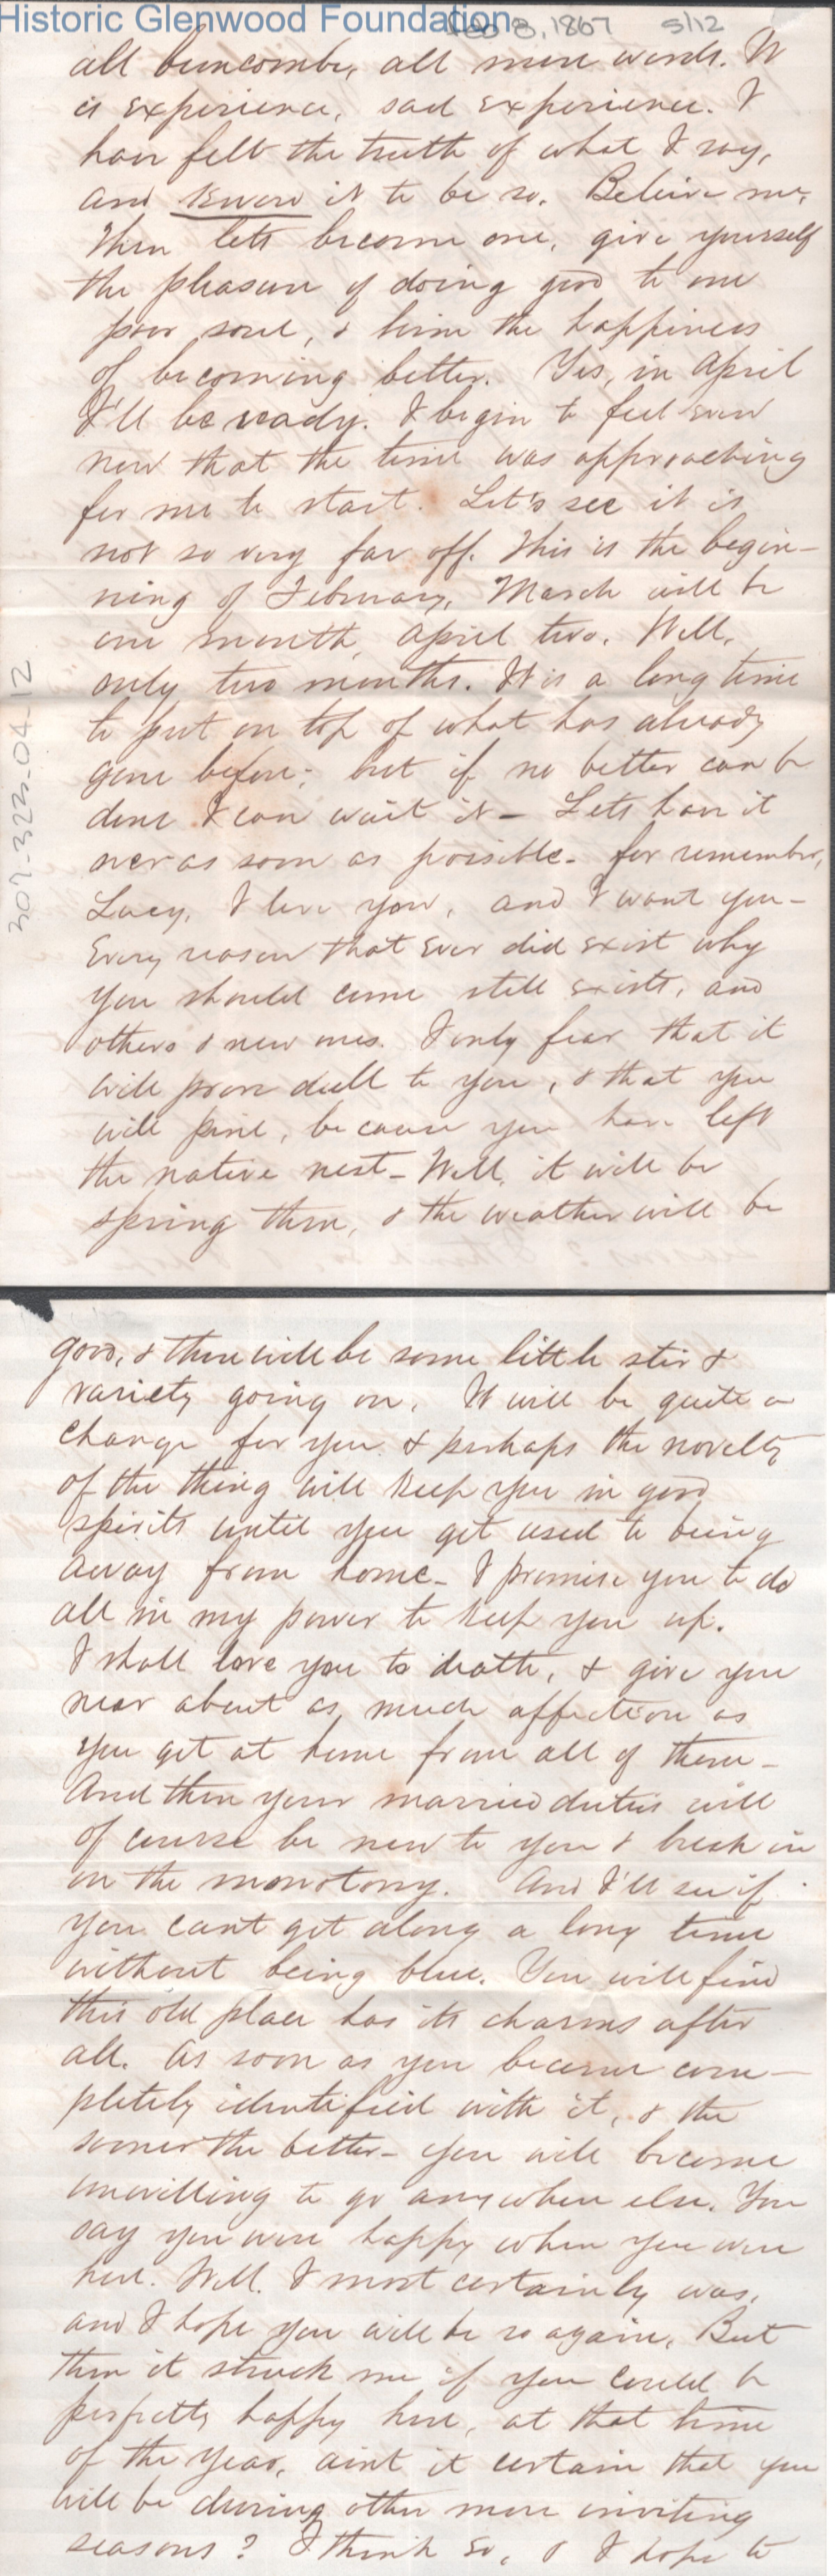 Historic Glenwood Foundation
Feb 8, 1867 5/12
all buncombe, all mere words. It
is experience, sad experience. I
have felt the truth of what I say,
and know it to be so. Believe me,
then lets become one, give yourself
the pleasure of doing good to one
poor soul, & him the happiness
of becoming better. Yes, in April
I'll be ready. I begin to feel even
now that the time was approaching
for me to start. Let's see it is
not so very far off. This is the begin-
ning of February, March will be
one month, April two. Well,
only two months. It is a long time
to put on top of what has already
gone before; but if no better can be
done I can wait it - Lets have it
over as soon as possible - for remember,
Lucy, I love you, and I want you -
Every reason that ever did exist why
you should come still exists, and
others & new ones. I only fear that it
will prove dull to you, & that you
will pine, because you have left
the native nest - Well, it will be
spring then, & the weather will be
307-323-04-12
good, & there will be some little stir &
variety going on. It will be quite a
change for you & perhaps the novelty
of the thing will keep you in good
spirits until you get used to being
away from home - I promise you to do
all in my power to keep you up.
I shall love you to death, & give you
near about as much affection as
you get at home from all of them -
And then your married duties will
of course be new to you & break in
on the monotony. And I'll see if
you cant get along a long time
without being blue. You will find
this old place has its charms after
all. As soon as you become com-
pletely identified with it, & the
sooner the better - you will become
unwilling to go anywhere else. You
say you were happy when you were
here. Well. I most certainly was,
and I hope you will be so again. But
then it struck me if you could be
perfectly happy here, at that time
of the year, aint it certain that you
will be during other more inviting
seasons? I think so, & I hope to